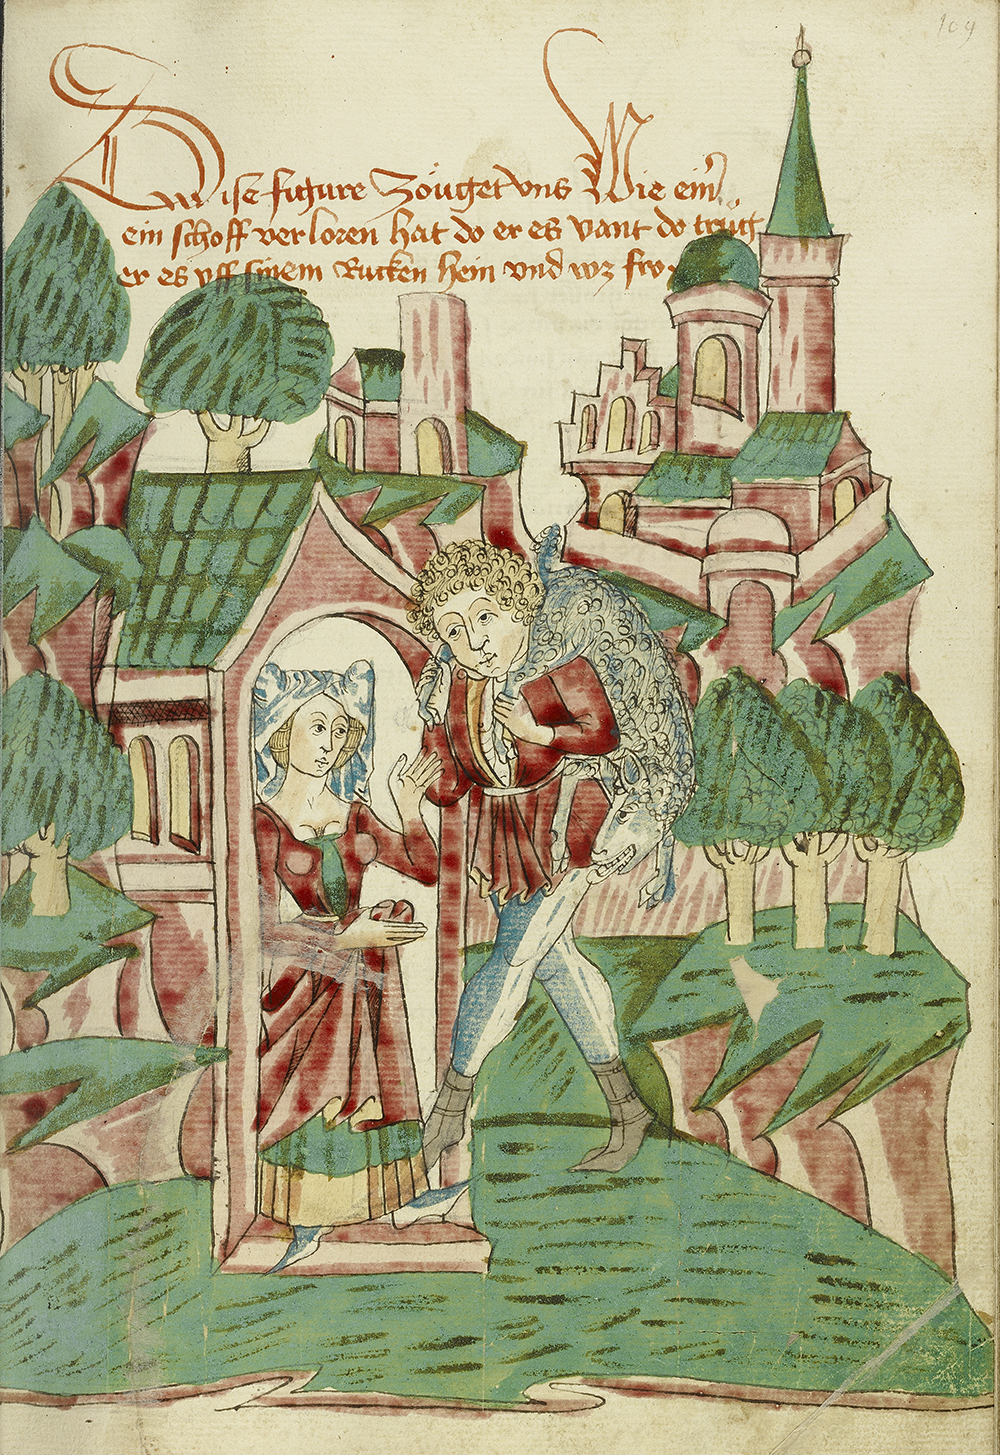 109
Dise figure Zöuget vns Wie ein
ein schoff verloren hat do er es vant do trůg
er es vff sinem Rucken hein vnd wz fro